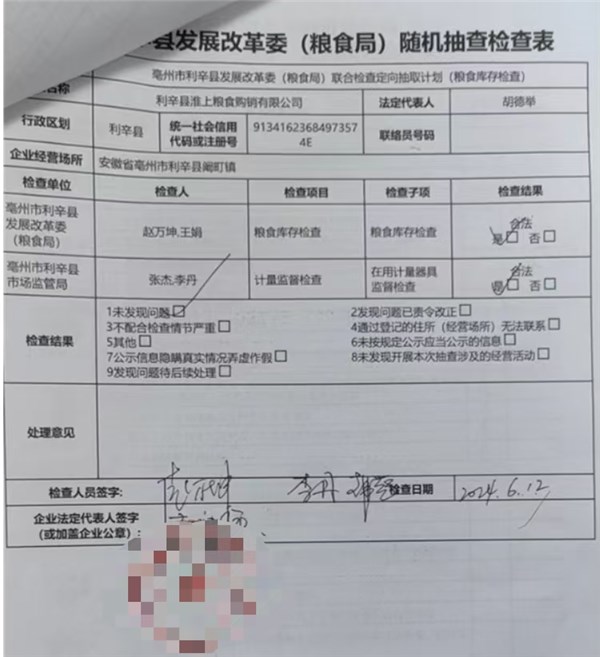 县发展改革委（粮食局）随机抽查检查表
名称
亳州市利辛县发展改革委（粮食局）联合检查定向抽取计划（粮食库存检查）
利辛县淮上粮食购销有限公司
法定代表人
胡德举
行政区划
利辛县
统一社会信用
代码或注册号
9134162368497357
4E
联络员号码
企业经营场所
安徽省亳州市利辛县阚疃镇
检查单位
检查人
检查项目
检查子项
检查结果
亳州市利辛县
发展改革委
（粮食局）
赵万坤,王娟
粮食库存检查
粮食库存检查
合法
是□ 否□
亳州市利辛县
市场监管局
张杰,李丹
计量监督检查
在用计量器具
监督检查
合法
是□ 否□
检查结果
1未发现问题□
2发现问题已责令改正□
3不配合检查情节严重□
4通过登记的住所（经营场所）无法联系□
5其他□
6未按规定公示应当公示的信息□
7公示信息隐瞒真实情况弄虚作假□
8未发现开展本次抽查涉及的经营活动□
9发现问题待后续处理□
处理意见
检查人员签字：
李丹
检查日期
2024.6.12
企业法定代表人签字
（或加盖企业公章）：